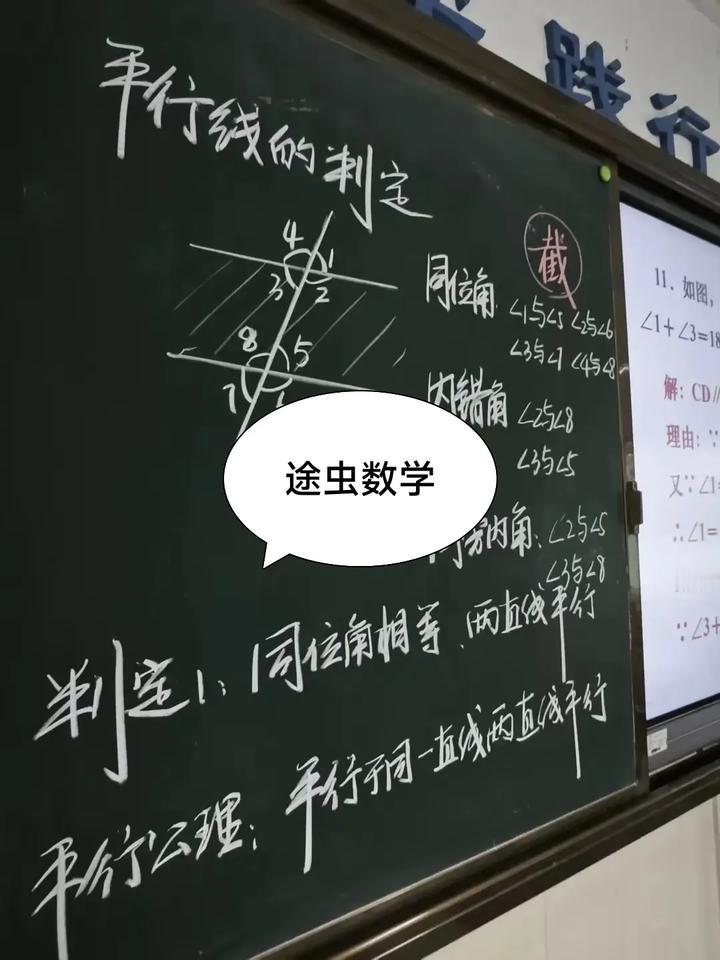 践行
平行线的判定
截
4
1
3
2
8
5
7
同位角 ∠1与∠5 ∠2与∠6
∠3与∠7 ∠4与∠8
内错角 ∠2与∠8
∠3与∠5
途虫数学
同旁内角:∠2与∠5
∠3与∠8
判定1:同位角相等、两直线平行
平行公理:平行于同一直线两直线平行
11. 如图,
∠1+∠3=18
解:CD//
理由:∵
又∵∠1=
∴∠1=
∵∠3+